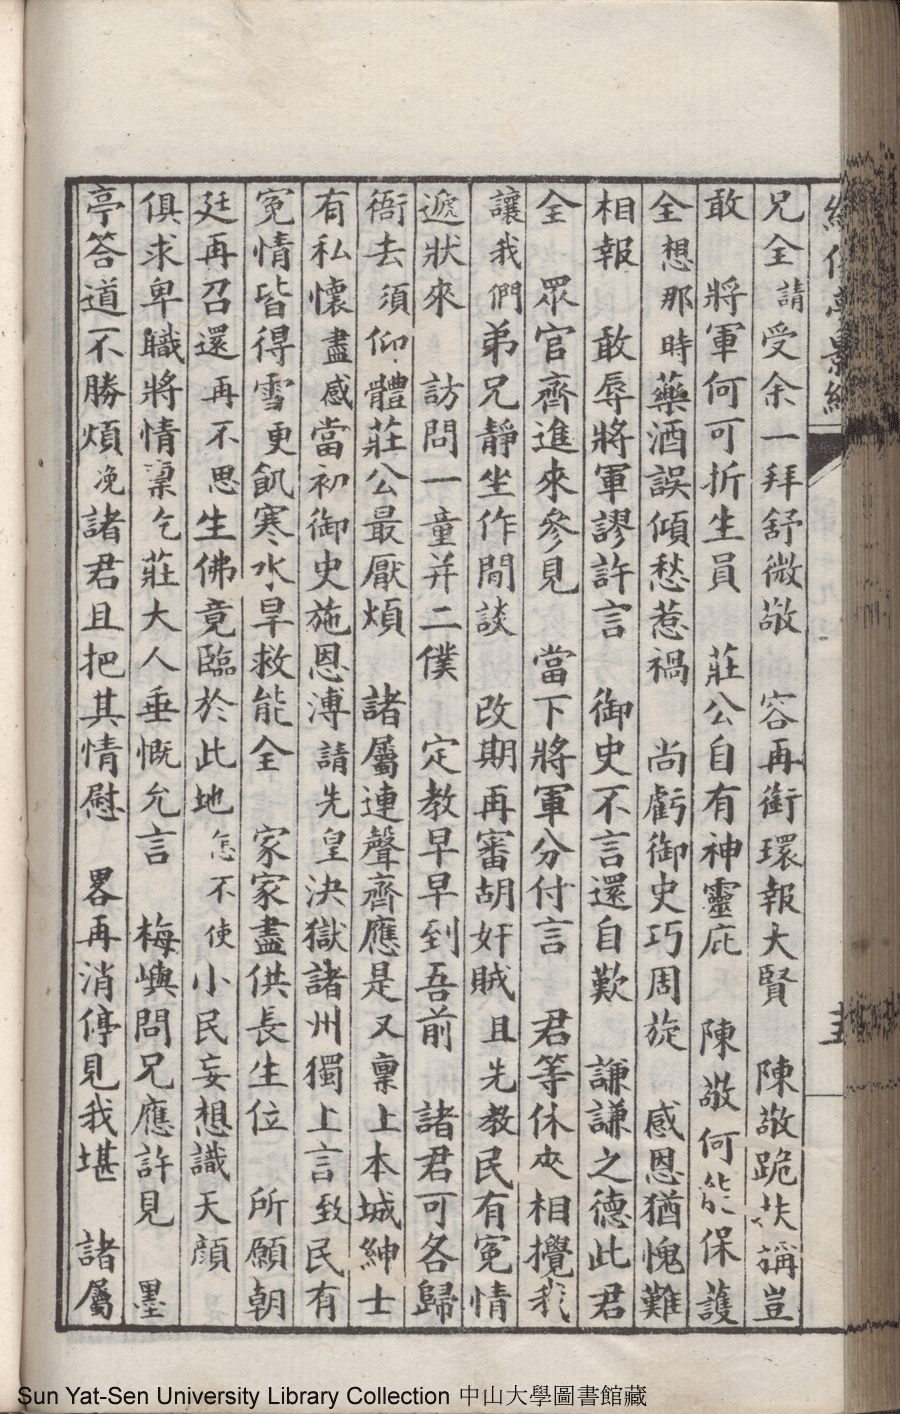 兄全請受余一拜舒微敬　容再銜環報大賢　陳敬跪扶稱豈
敢　將軍何可折生員　莊公自有神靈庇　陳敬何能保護
全想那時藥酒誤傾愁惹禍　尚虧御史巧周旋　感恩猶愧難
相報　敢辱將軍謬許言　御史不言還自歎　謙謙之德此君
全　眾官齊進來參見　當下將軍分付言　君等休來相攪我
讓我們弟兄靜坐作閒談　改期再審胡奸賊且先教民有冤情
遞狀來　訪問一童并二僕　定教早早到吾前　諸君可各歸
衙去須仰體莊公最厭煩　諸屬連聲齊應是又稟上本城紳士
有私懷盡感當初御史施恩溥請先皇決獄諸州獨上言致民有
冤情皆得雪更飢寒水旱救能全　家家盡供長生位　所願朝
廷再召還再不思生佛竟臨於此地怎不使小民妄想識天顏
俱求卑職將情稟乞莊大人垂慨允言　梅嶼問兄應許見　墨
亭答道不勝煩浼諸君且把其情慰　畧再消停見我堪　諸屬
Sun Yat-Sen University Library Collection 中山大學圖書館藏